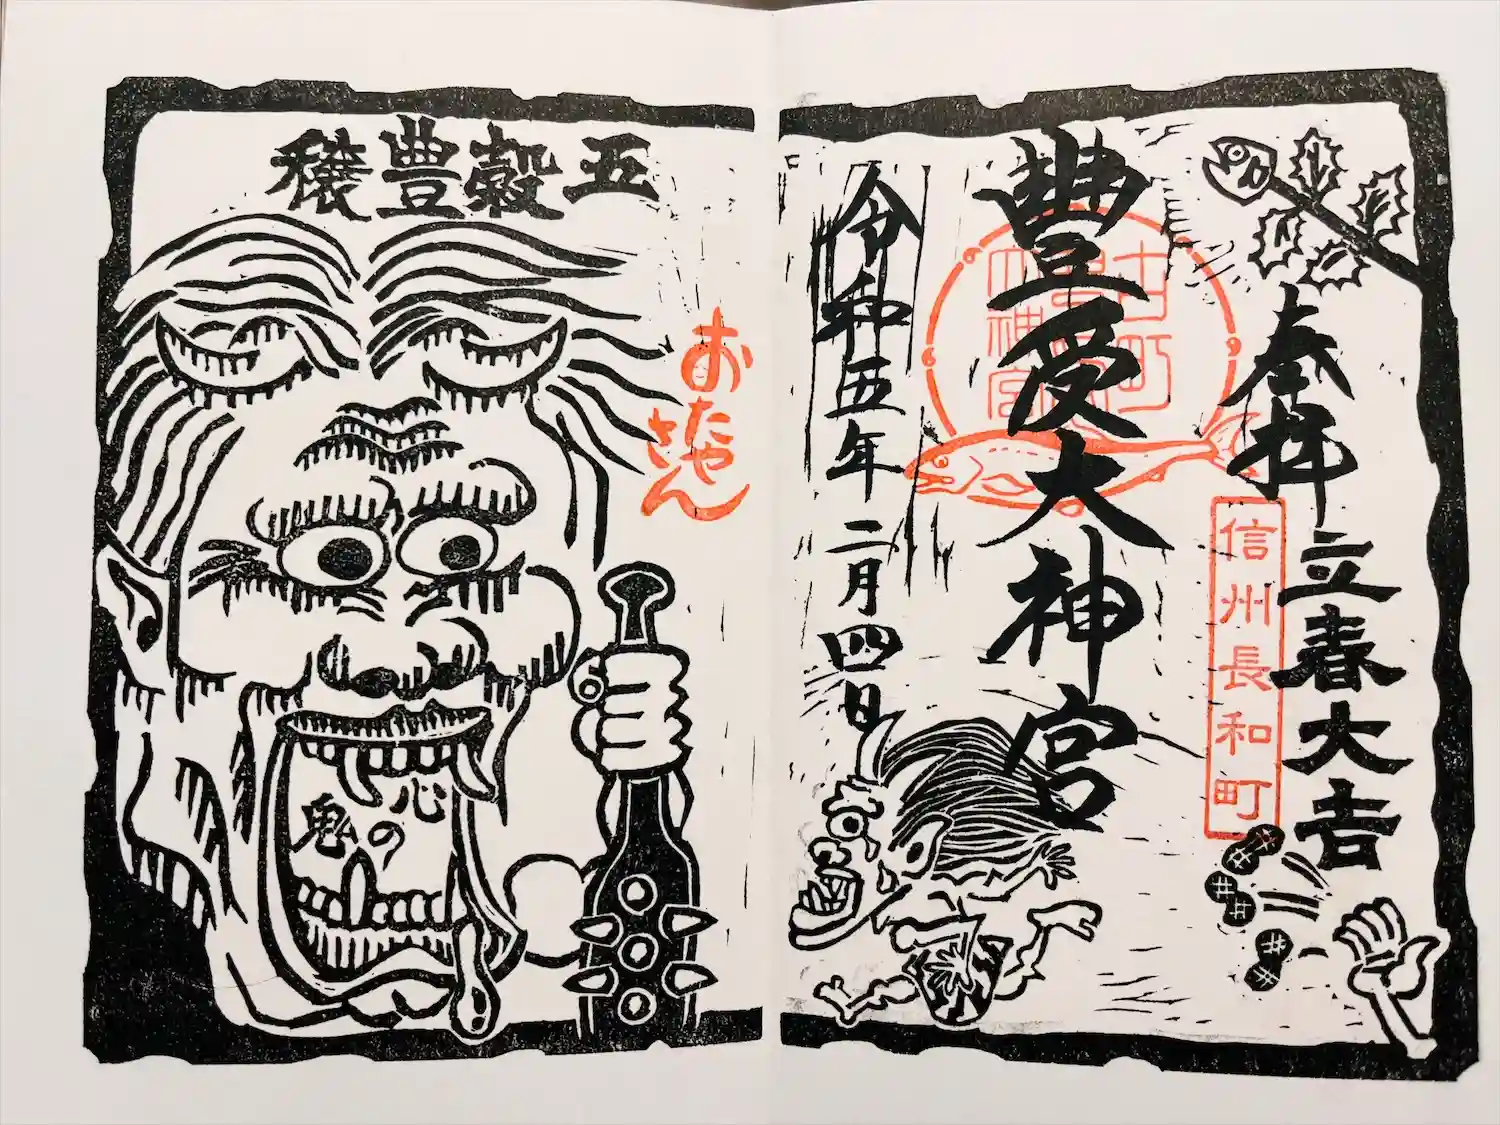 奉拝
立春大吉
信州長和町
豊受大神宮
令和五年二月四日
五穀豊穣
おたや
さん
心の
鬼